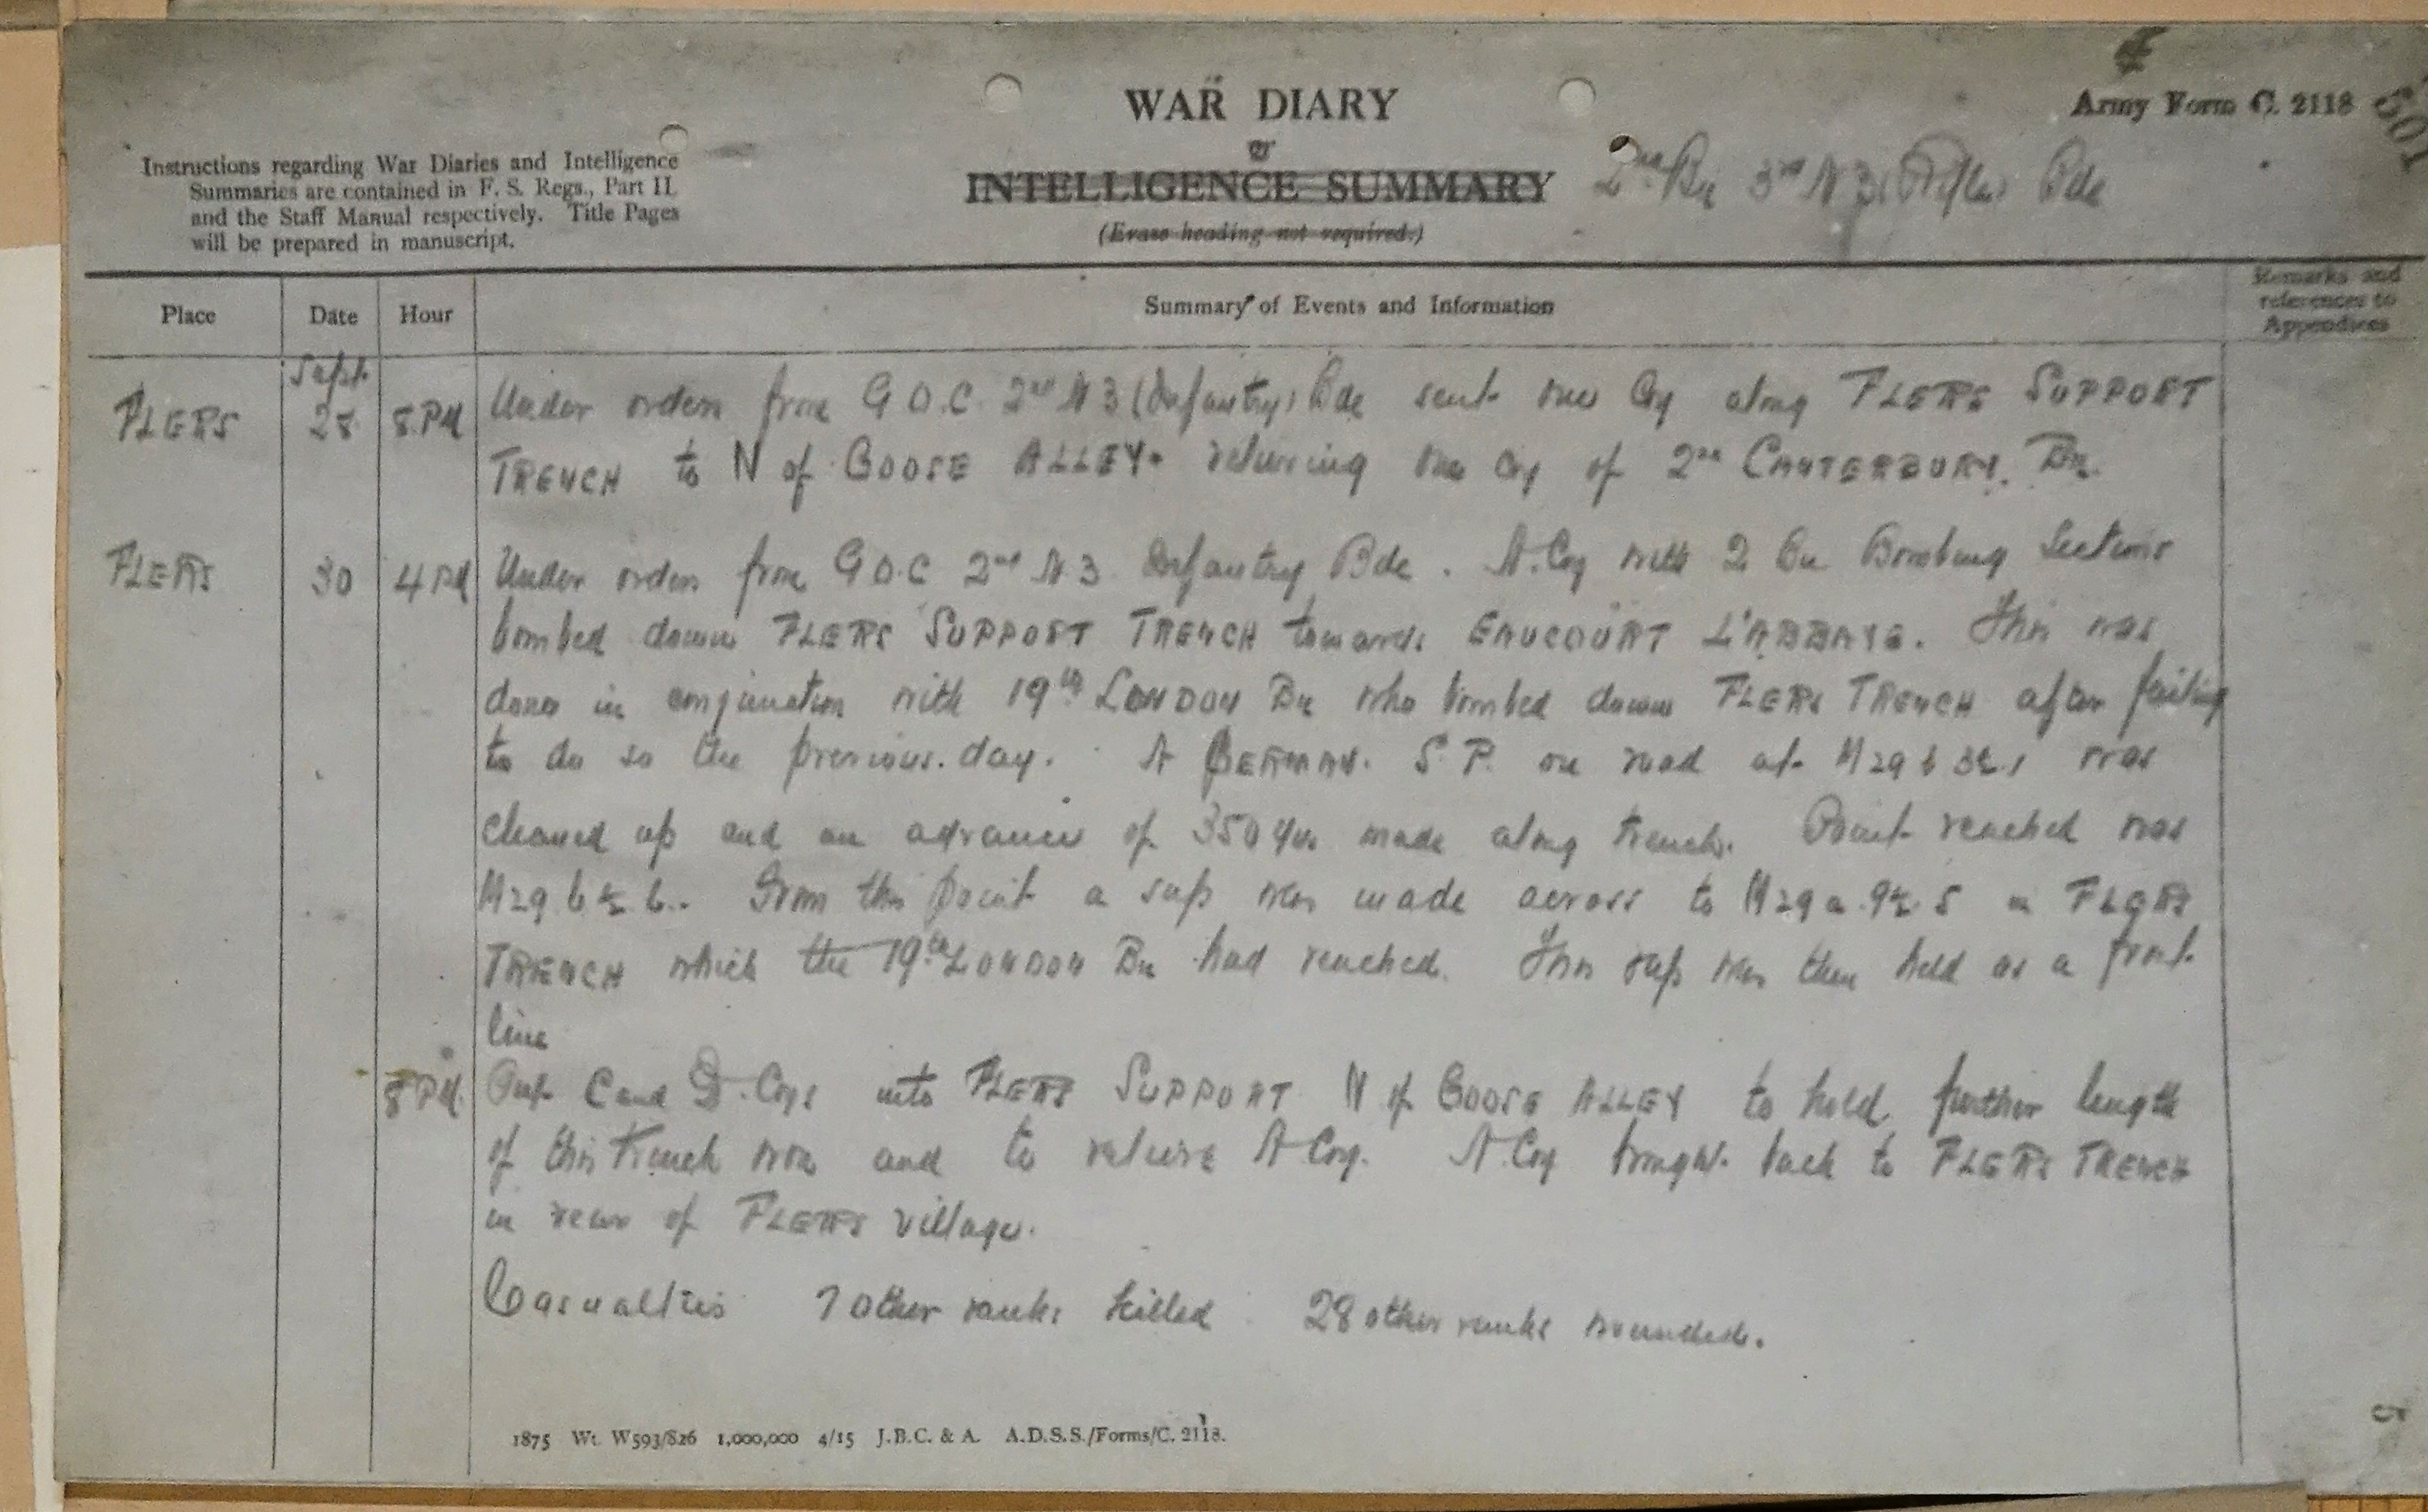 Army Form C. 2118
WAR DIARY
or
INTELLIGENCE SUMMARY
(Erase heading not required.)
2nd Bn 3rd N Z (Rifle) Bde
Instructions regarding War Diaries and Intelligence
Summaries are contained in F. S. Regs., Part II.
and the Staff Manual respectively. Title Pages
will be prepared in manuscript.
Place Date Hour Summary of Events and Information Remarks and references to Appendices
Sept.
FLERS 28 8 PM Under orders from G O.C. 2nd N Z (Infantry) Bde sent one Coy along FLERS SUPPORT
TRENCH to N of GOOSE ALLEY. relieving one Coy of 2nd CANTERBURY. Bn.
FLERS 30 4 PM Under orders from G O.C 2nd N.Z. Infantry Bde. A. Coy with 2 Bn Bombing Sections
bombed down FLERS SUPPORT TRENCH towards EAUCOURT L'ABBAYE. This was
done in conjunction with 19th LONDON Bn who bombed down FLERS TRENCH after failing
to do so the previous. day. A GERMAN. S. P. on road at M 29 b 3½.1 was
cleaned up and an advance of 350 yds made along trench. Point reached was
M 29 b ½. 6.. From this point a sap was made across to M 29 a. 9½. 5 in FLERS
TRENCH which the 19th LONDON Bn had reached. This sap was then held as a front
line
8 PM. Put C and D. Coys into FLERS SUPPORT N of GOOSE ALLEY to hold further length
of this trench won and to relieve A Coy. A. Coy brought back to FLERS TRENCH
in rear of FLERS village.
Casualties 7 other ranks killed 28 other ranks wounded.
1875 Wt. W593/826 1,000,000 4/15 J.B.C. & A. A.D.S.S./Forms/C. 2118.